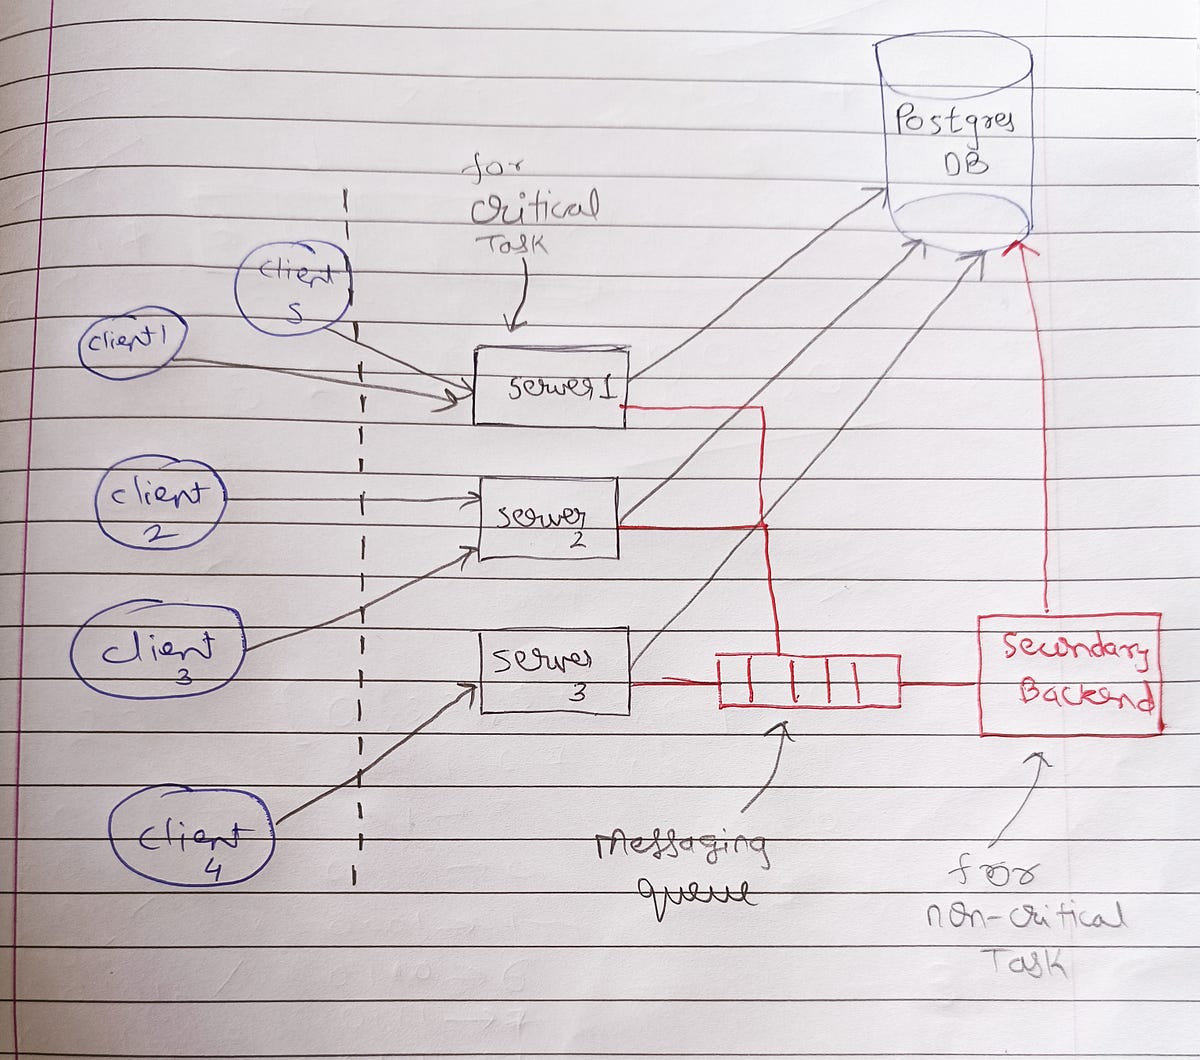 Postgres
DB
for
critical
Task
client
5
client 1
server 1
client
2
server
2
client
3
server
3
Secondary
Backend
client
4
messaging
queue
for
non-critical
Task